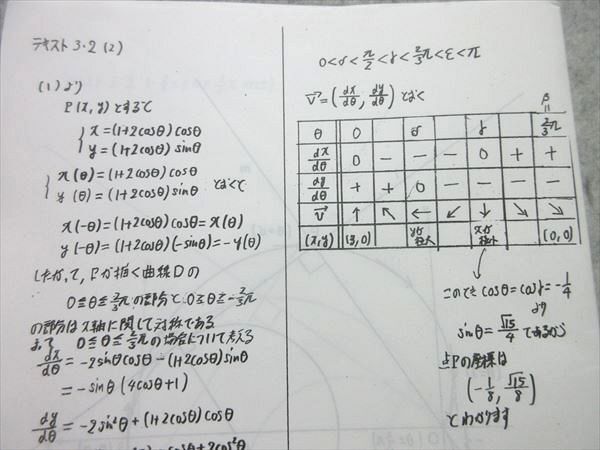 テキスト3・2 (2)
(1)より
P(x, y)とすると
x = (1+2cosθ)cosθ
y = (1+2cosθ)sinθ
x(θ) = (1+2cosθ)cosθ
y(θ) = (1+2cosθ)sinθ とおくと
x(-θ) = (1+2cosθ)cosθ = x(θ)
y(-θ) = (1+2cosθ)(-sinθ) = -y(θ)
したがって, Pが描く曲線Dの
0≦θ≦2/3πの部分と0≧θ≧-2/3π
の部分はx軸に関して対称である
よって 0≦θ≦2/3πの場合について考える
dx/dθ = -2sinθcosθ-(1+2cosθ)sinθ
= -sinθ(4cosθ+1)
dy/dθ = -2sin²θ+(1+2cosθ)cosθ
0<δ<π/2<γ<2/3π<ε<π
v = (dx/dθ, dy/dθ) とおく
β
=
θ 0 δ γ 2/3π
dx/dθ 0 - - - 0 + +
dy/dθ + + 0 - - - -
v ↑ ↖ ← ↙ ↓ ↘ ↘
(x,y) (3,0) yが極大 xが極小 (0,0)
このとき cosθ=cosγ=-1/4
より
sinθ = √15/4 であるから
点Pの座標は
(-1/8, √15/8)
とわかります